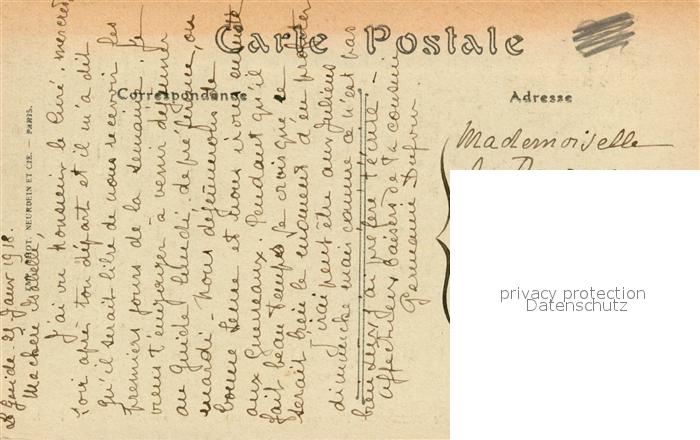 Carte Postale
Correspondance
Adresse
PHOT. NEURDEIN ET CIE. — PARIS.
Guide 23 Janv 1918.
Ma chère Isabelle,
J'ai vu Monsieur le Curé, mercredi
soir après ton départ et il m'a dit
qu'il serait libre de nous recevoir les
premiers jours de la semaine. Je
viens t'engager à venir déjeuner
au Guide lundi de préférence, ou
mardi - Nous déjeunerons de
bonne heure et nous irons ensuite
aux Gueneaux. Pendant qu'il
fait beau temps je crois que ce
serait bien le moment d'en profiter
J'irai peut être aux Juliens
dimanche mais comme ce n'est pas
bien sûr j'ai préféré t'écrire -
Affectueux baisers de ta cousine
Germaine Dufour.
Mademoiselle
privacy protection
Datenschutz